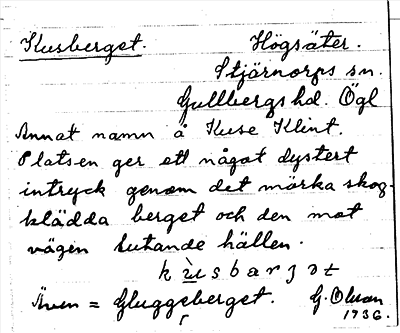 Kusberget. Högsäter.
Stjärnorps sn.
Gullbergs hd. Ögl
Annat namn å Kuse Klint.
Platsen ger ett något dystert
intryck genom det mörka skog-
klädda berget och den mot
vägen lutande hällen.
k ù s b a r ʒ ə t
Även = Gluggeberget. G. Olson
1736.